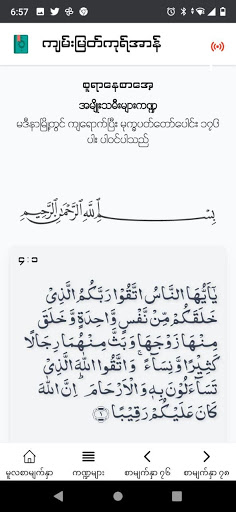 6:57
ကျမ်းမြတ်ကုရ်အာန်
စူရာနေစာအေ့
အမျိုးသမီးများကဏ္ဍ
မဒီနာမြို့တွင် ကျရောက်ပြီး မုက္ခပတ်တော်ပေါင်း ၁၇၆
ပါး ပါဝင်ပါသည်
بِسْمِ اللَّهِ الرَّحْمَٰنِ الرَّحِيمِ
၄:၁
يٰۤاَيُّهَا النَّاسُ اتَّقُوْا رَبَّكُمُ الَّذِىْ
خَلَقَكُمْ مِّنْ نَّفْسٍ وَّاحِدَةٍ وَّخَلَقَ
مِنْهَا زَوْجَهَا وَبَثَّ مِنْهُمَا رِجَالًا
كَثِيْرًا وَّنِسَآءً ۚ وَاتَّقُوا اللّٰهَ الَّذِىْ
تَسَآءَلُوْنَ بِهٖ وَالْاَرْحَامَ ؕ اِنَّ اللّٰهَ
كَانَ عَلَيْكُمْ رَقِيْبًا ﴿۱﴾
မူလစာမျက်နှာ ကဏ္ဍများ စာမျက်နှာ ၇၆ စာမျက်နှာ ၇၈